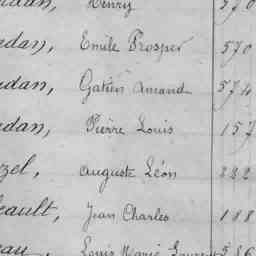 udan, Henry 570
udan, Emile Prosper 570
udan, Gatien Amand 574
udan, Pierre Louis 157
zel, Auguste Léon 222
eault, Jean Charles 188
eau, Louis Marie 586